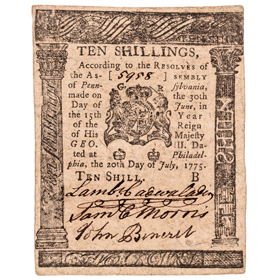 TEN SHILLINGS,
According to the RESOLVES of
the As- [ 5958 ] SEMBLY
of Penn- G R sylvania,
made on the 30th
Day of June, in
the 15th Year
of the Reign
of His Majesty
GEO. III. Da-
ted at Philadel-
phia, the 20th Day of July, 1775.
TEN SHILL. B
Lamb. Cadwalader
Sam C Morris
John